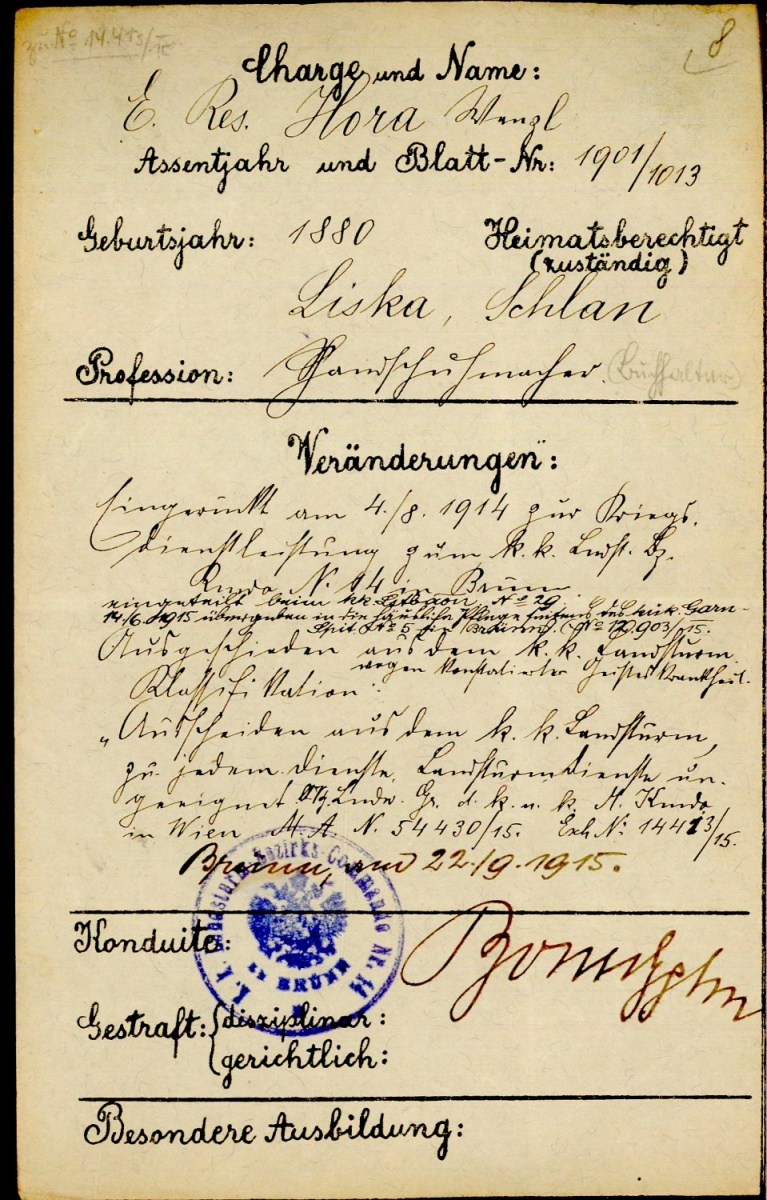 zu Nº 14.413/15
8
Charge und Name:
E. Res. Hora Wenzl
Assentjahr und Blatt-Nr: 1901/1013
Geburtsjahr: 1880 Heimatsberechtigt
(zuständig)
Liska, Schlan
Profession: Handschuhmacher. (Buchhalter)
Veränderungen:
Eingerückt am 4./8. 1914 zur Kriegs-
dienstleistung zum k.k. Lndst. Bz.
Kmdo N. 14 in Brünn.
eingeteilt beim kk Lstbaon. Nº 29
14./6. 1915 übergeben in die häusliche Pflege seitens des k.u.k. Garn-
Spit. Nº 5 in Brünn. (Nº 12.903/15.
Ausgeschieden aus dem k. k. Landsturm
wegen konstatierter Geisteskrankheit.
Klassifikation:
"Ausscheiden aus dem k. k. Landsturm,
zu jedem Dienste, Landsturmdienste un-
geeignet Lndw. Gr. d. k. u. k. M. Kmdo
in Wien M.A. N. 54430/15. Exh. Nº 14413/15.
Brünn, am 22./9. 1915.
K. k. Landsturm-Bezirks-Commando Nr. 14
in BRÜNN
Konduite:
Gestraft: disziplinar:
gerichtlich:
Besondere Ausbildung: